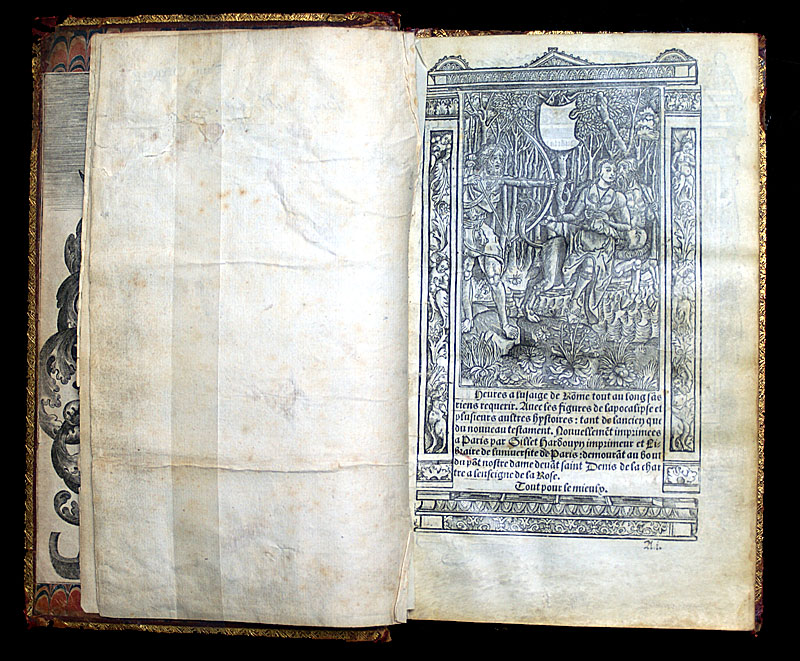 Heures a lusaige de Rōme tout au long sās
riens requerir. Avec les figures de lapocalipse et
plusieurs aultres hystoires: tant de lancien que
du nouveau testament. Nouvellemēt imprimees
a Paris par Gillet Hardouyn imprimeur et Li-
braire de luniversite de Paris: demourāt au bout
du pōt nostre dame devāt saint Denis de la char
tre a lenseigne de la Rose.
Tout pour le mieulx.
A.i.